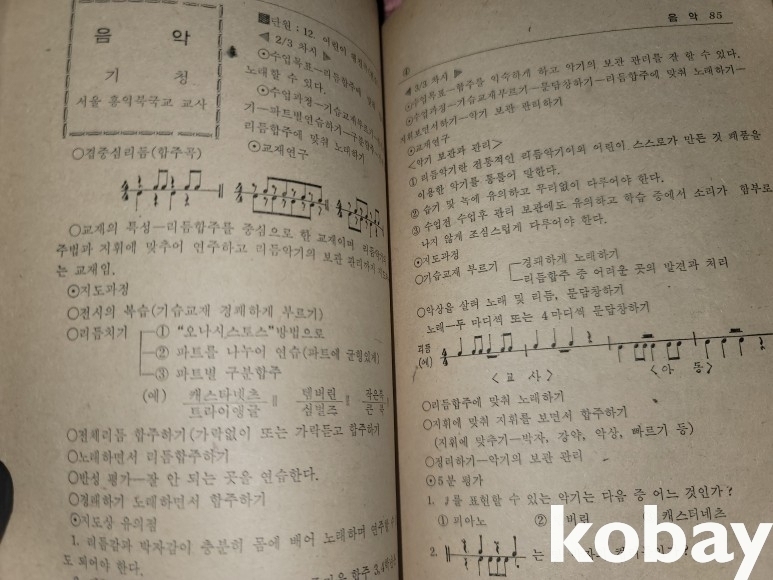 음 악
기 청
서울 홍익북국교 교사
단원 : 12. 어린이
◀ 2/3 차시 ▶
⊙수업목표—리듬합주에 맞춰
노래할 수 있다.
⊙수업과정—기습교재부르기
기—파트별연습하기—구분합주
리듬합주에 맞춰 노래하기
⊙교재연구
○겹중심리듬(합주곡)
○교재의 특성—리듬합주를 중심으로 한 교재이며
주법과 지휘에 맞추어 연주하고 리듬악기의 보관 관리까지
는 교재임.
⊙지도과정
○전시의 복습(기습교재 경쾌하게 부르기)
○리듬치기
① "오나시스토스"방법으로
② 파트를 나누어 연습(파트에 균형있게)
③ 파트별 구분합주
(예) 캐스타네츠 탬버린 작은북
트라이앵글 심벌즈 큰 북
○전체리듬 합주하기(가락없이 또는 가락듣고 합주하기
○노래하면서 리듬합주하기
○반성 평가—잘 안 되는 곳을 연습한다.
○경쾌하기 노래하면서 합주하기
⊙지도상 유의점
1. 리듬감과 박자감이 충분히 몸에 배어 노래하며 연주할 수
도 되어야 한다.
합주 3,4학년
음 악 85
◀ 3/3 차시 ▶
⊙수업목표—합주를 익숙하게 하고 악기의 보관 관리를 잘 할 수 있다.
⊙수업과정—기습교재부르기—문답창하기—리듬합주에 맞춰 노래하기—
지휘보면서하기—악기 보관 관리하기
⊙교재연구
<악기 보관과 관리>
① 리듬악기란 전통적인 리듬악기이외 어린이 스스로가 만든 것 폐품을
이용한 악기를 통틀어 말한다.
② 습기 및 녹에 유의하고 무리없이 다루어야 한다.
③ 수업전 수업후 관리 보관에도 유의하고 학습 중에서 소리가 함부로
나지 않게 조심스럽게 다루어야 한다.
⊙지도과정
○기습교재 부르기
경쾌하게 노래하기
리듬합주 중 어려운 곳의 발견과 처리
○악상을 살려 노래 및 리듬, 문답창하기
노래—두 마디씩 또는 4 마디씩 문답창하기
리듬
(예)
<교 사>
<아 동>
○리듬합주에 맞춰 노래하기
○지휘에 맞춰 지휘를 보면서 합주하기
(지휘에 맞추기—박자, 강약, 악상, 빠르기 등)
○정리하기—악기의 보관 관리
⊙5분 평가
1. 를 표현할 수 있는 악기는 다음 중 어느 것인가?
① 피아노 ② 버린 캐스터네츠
2. 는
kobay